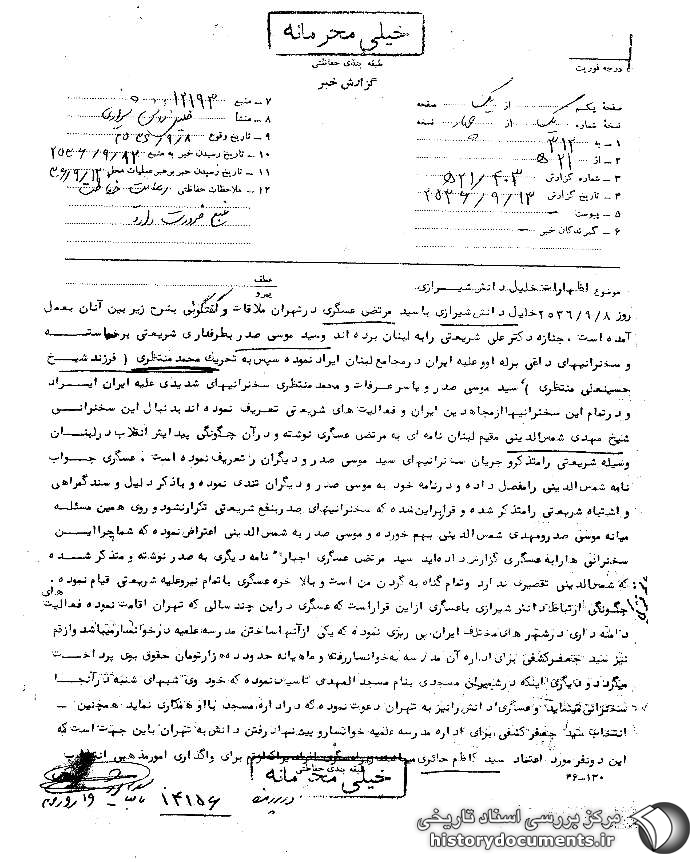 خیلی محرمانه
طبقه بندی حفاظتی
گزارش خبر
درجه فوریت
صفحه یکم از یک صفحه
نسخه شماره یک از چهار نسخه
۱ ـ به ۳۱۲
۲ ـ از ۵۲۱
۳ ـ شماره گزارش ۵۲۱/۴۰۳
۴ ـ تاریخ گزارش ۲۵۳۶/۹/۱۳
۵ ـ پیوست ـ
۶ ـ گیرندگان خبر ـ
۷ ـ منبع ۱۲۱۹۳
۸ ـ منشا خلیل دانش شیرازی
۹ ـ تاریخ وقوع ۲۵۳۶/۹/۸
۱۰ ـ تاریخ رسیدن خبر به منبع
۱۱ ـ تاریخ رسیدن خبر برهبر عملیات محل
۱۲ ـ ملاحظات حفاظتی رعایت حفاظت
منبع ضرورت دارد
موضوع اظهارات خلیل دانش شیرازی
عطف
پیرو
روز ۲۵۳۶/۹/۸ خلیل دانش شیرازی با سید مرتضی عسگری در شهران ملاقات و گفتگوئی بشرح زیر بین آنان بعمل
آمده است . جنازه دکتر علی شریعتی را به لبنان برده اند و سید موسی صدر بطرفداری شریعتی برخاسته
و سخنرانیهای داغی برله او و علیه ایران در مجامع لبنان ایراد نموده سپس به تحریک محمد منتظری ( فرزند شیخ
حسینعلی منتظری ) سید موسی صدر و یاسر عرفات و محمد منتظری سخنرانیهای شدیدی علیه ایران ایراد
و در تمام این سخنرانیها از مجاهدین ایران و فعالیت های شریعتی تعریف نموده اند بدنبال این سخنرانی
شیخ مهدی شمس الدینی مقیم لبنان نامه ای به مرتضی عسگری نوشته و در آن چگونگی پیدایش انقلاب در لبنان
وسیله شریعتی را متذکر و جریان سخنرانیهای سید موسی صدر و دیگران را تعریف نموده است . عسگری جواب
نامه شمس الدینی را مفصل داده و در نامه خود به موسی صدر و دیگران تندی نموده و با ذکر دلیل و سند گمراهی
و اشتباه شریعتی را متذکر شده و قرار براین شده که سخنرانیهای صدر بنفع شریعتی تکرار نشود و روی همین مسئله
میانه موسی صدر و مهدی شمس الدینی بهم خورده و موسی صدر به شمس الدینی اعتراض نموده که شما چرا این
سخنرانی ها را به عسگری گزارش داده اید سید مرتضی عسگری اجبارا" نامه دیگری به صدر نوشته و متذکر شده
که شمس الدینی تقصیری ندارد و تمام گناه به گردن من است و بالاخره عسگری با تمام نیرو علیه شریعتی قیام نموده .
چگونگی ارتباط دانش شیرازی با عسگری از این قرار است که عسگری در این چند سالی که تهران اقامت نموده فعالیت های
دامنه داری در شهرهای مختلف ایران پی ریزی نموده که یکی از آنها ساختن مدرسه علمیه در خوانسار میباشد و از قم
نیز سید جعفر کشفی برای اداره آن مدرسه به خوانسار رفته و ماهیانه حدود ده هزار تومان حقوق بوی پرداخت
میگردد و دیگری اینکه در شمیران مسجدی بنام مسجد المهدی تاسیس نموده که خود وی شبهای شنبه در آنجا
سخنرانی مینماید و عسگری دانش را نیز به تهران دعوت نموده که در اداره مسجد با او همکاری نماید همچنین ـ
انتخاب سید جعفر کشفی برای اداره مدرسه علمیه خوانسار و پیشنهاد رفتن دانش به تهران باین جهت است که
این دو نفر مورد اعتماد سید کاظم حائری برای واگذاری امور مذهبی انتخاب
۴۶-۱۳۰
طبقه بندی حفاظتی
خیلی محرمانه
۱۴۱۵۶
مرکز بررسی اسناد تاریخی
historydocuments.ir